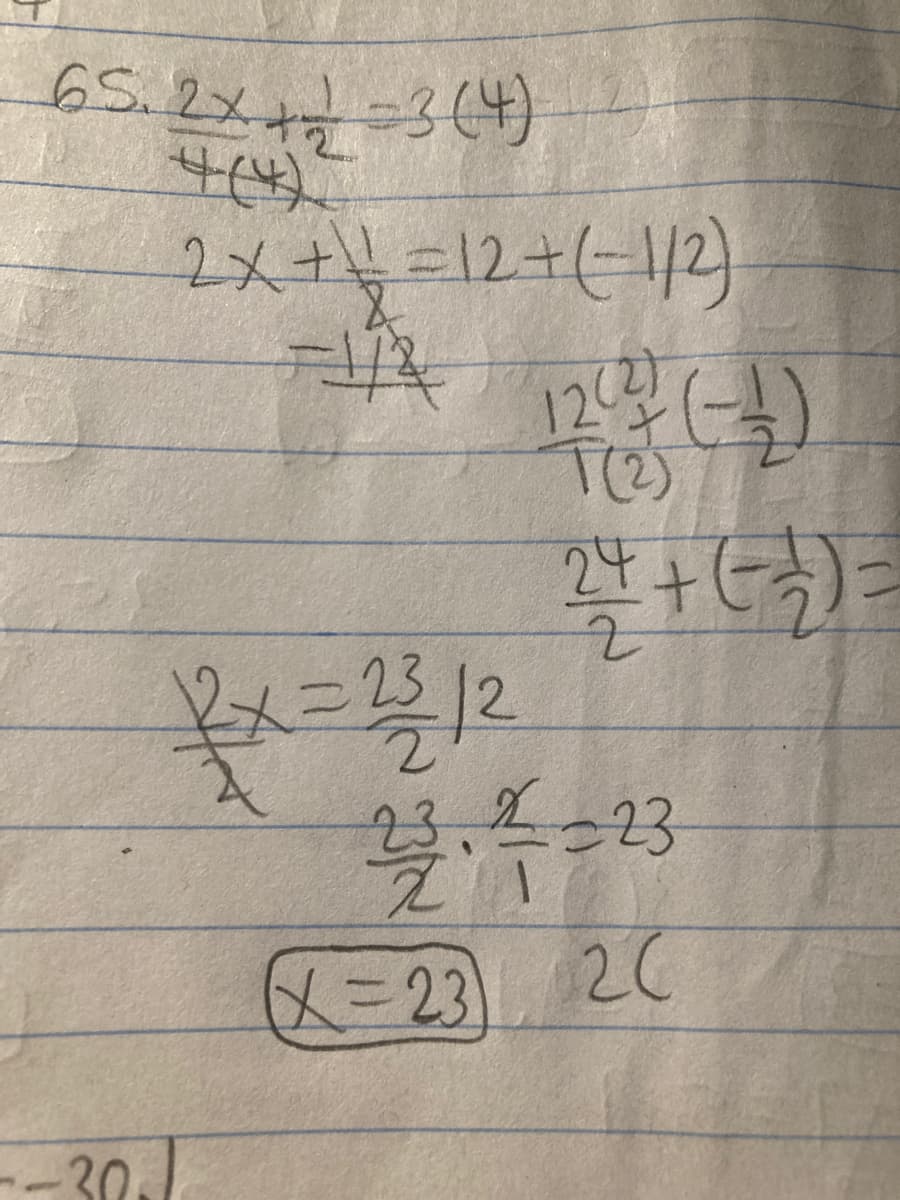 65. 2x/4(4) + 1/2 = 3(4)
2x + 1/2 = 12 + (-1/2)
-1/2
12(2)/1(2) + (-1/2)
24/2 + (-1/2) =
2x/2 = 23/2 / 2
23/2 · 2/1 = 23
x = 23 2(
--30.